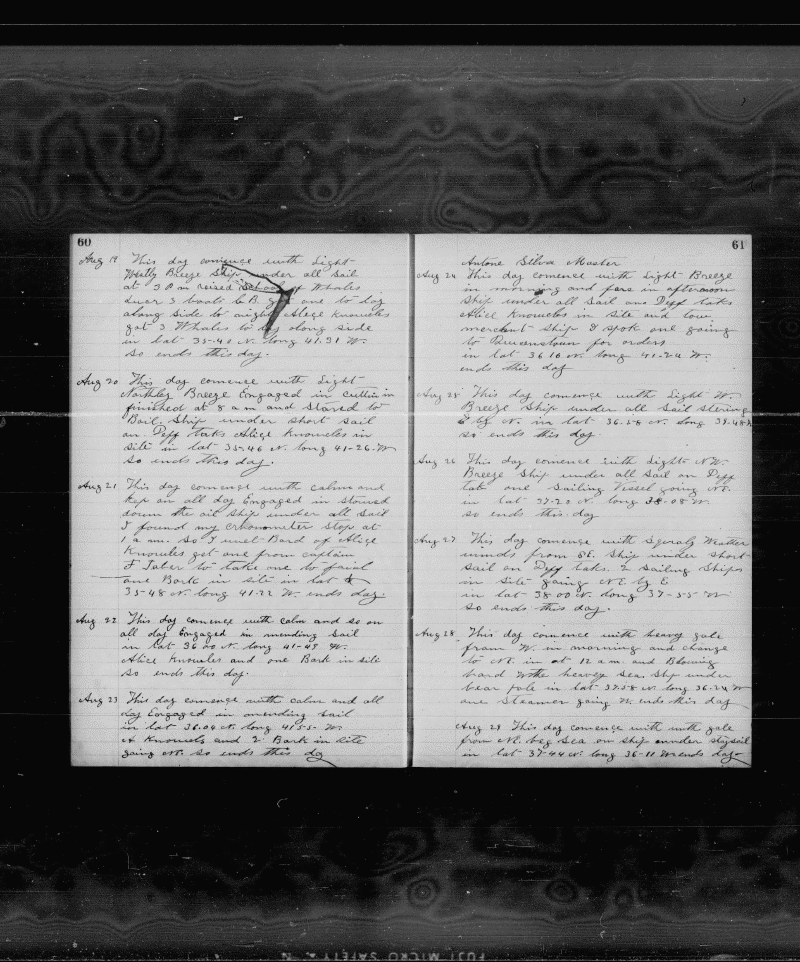 60
Aug 19 This day comence with Light
Westly Breeze Ship under all Sail
at 3 P m reised School of Whales
Luer 3 boats L.B. got one to day
along side to night Alice Knowles
got 3 Whales to day along side
in lat 35-40 N. long 41.31 W.
so ends this day.
Aug 20 This day comence with Light
Northley Breeze Engaged in cuttin in
finished at 8 a m and Stared to
Boil. Ship under short sail
on Deff taks Alice Knowles in
site in lat 35-46 N. long 41-26-W
so ends this day.
Aug 21 This day comence with calm and
kep on all day Engaged in stowed
down the oil ship under all sail
I found my cronometer stop at
1 a.m. so I met Bard of Alice
Knowles get one from captain
F Taber to take one to faial
one Bark in site in lat
35-48 N. long 41-22 W. ends day.
Aug 22 This day comence with calm and so on
all day Engaged in mending sail
in lat 36 00 N. long 41-49 W.
Alice Knowles and one Bark in site
so ends this day.
Aug 23 This day comence with calm and all
day Engaged in mending sail
in lat 36.04 N. long 41-55- W.
A Knowels and 2 Bark in site
going N. so ends this dg
61
Antone Silva Master
Aug 24 This day comence with Light Breeze
in morning and fere in afternoon
Ship under all Sail ons Deff taks
Alice Knowles in site and tow
merchent ship & spok one going
to Provenstown for orders
in lat 36 16 N. long 41-24 W.
ends this day
Aug 25 This day comence with Light W.
Breeze Ship under all sail stering
E by N. in lat 36.58 N. long 39-48
so ends this day.
Aug 26 This day comence with Light N.W.
Breeze Ship under all Sail on Deff
tak one Sailing Vessel going N.E.
in lat 37-20 N. long 38-08 W.
so ends this day
Aug 27 This day comence with Sqeraly Weather
winds from SE. Ship under short
sail on Deff taks. 2 Sailing Ships
in site going N.E. by E
in lat 38 00 N. long 37-55 W
so ends this day.
Aug 28 This day comence with heavy gale
from W. in morning and change
to N.E. in at 12 a.m. and Blowing
hard With heavey Sea. Ship under
bear pole in lat 37.58 N. long 36-24 W
one Steamer going W. ends this day
Aug 29 This day comence with with gale
from N.E. beg Sea on ship under staysail
in lat 37-44 N. long 36-11 W ends day
FUJI MICRO SAFETY